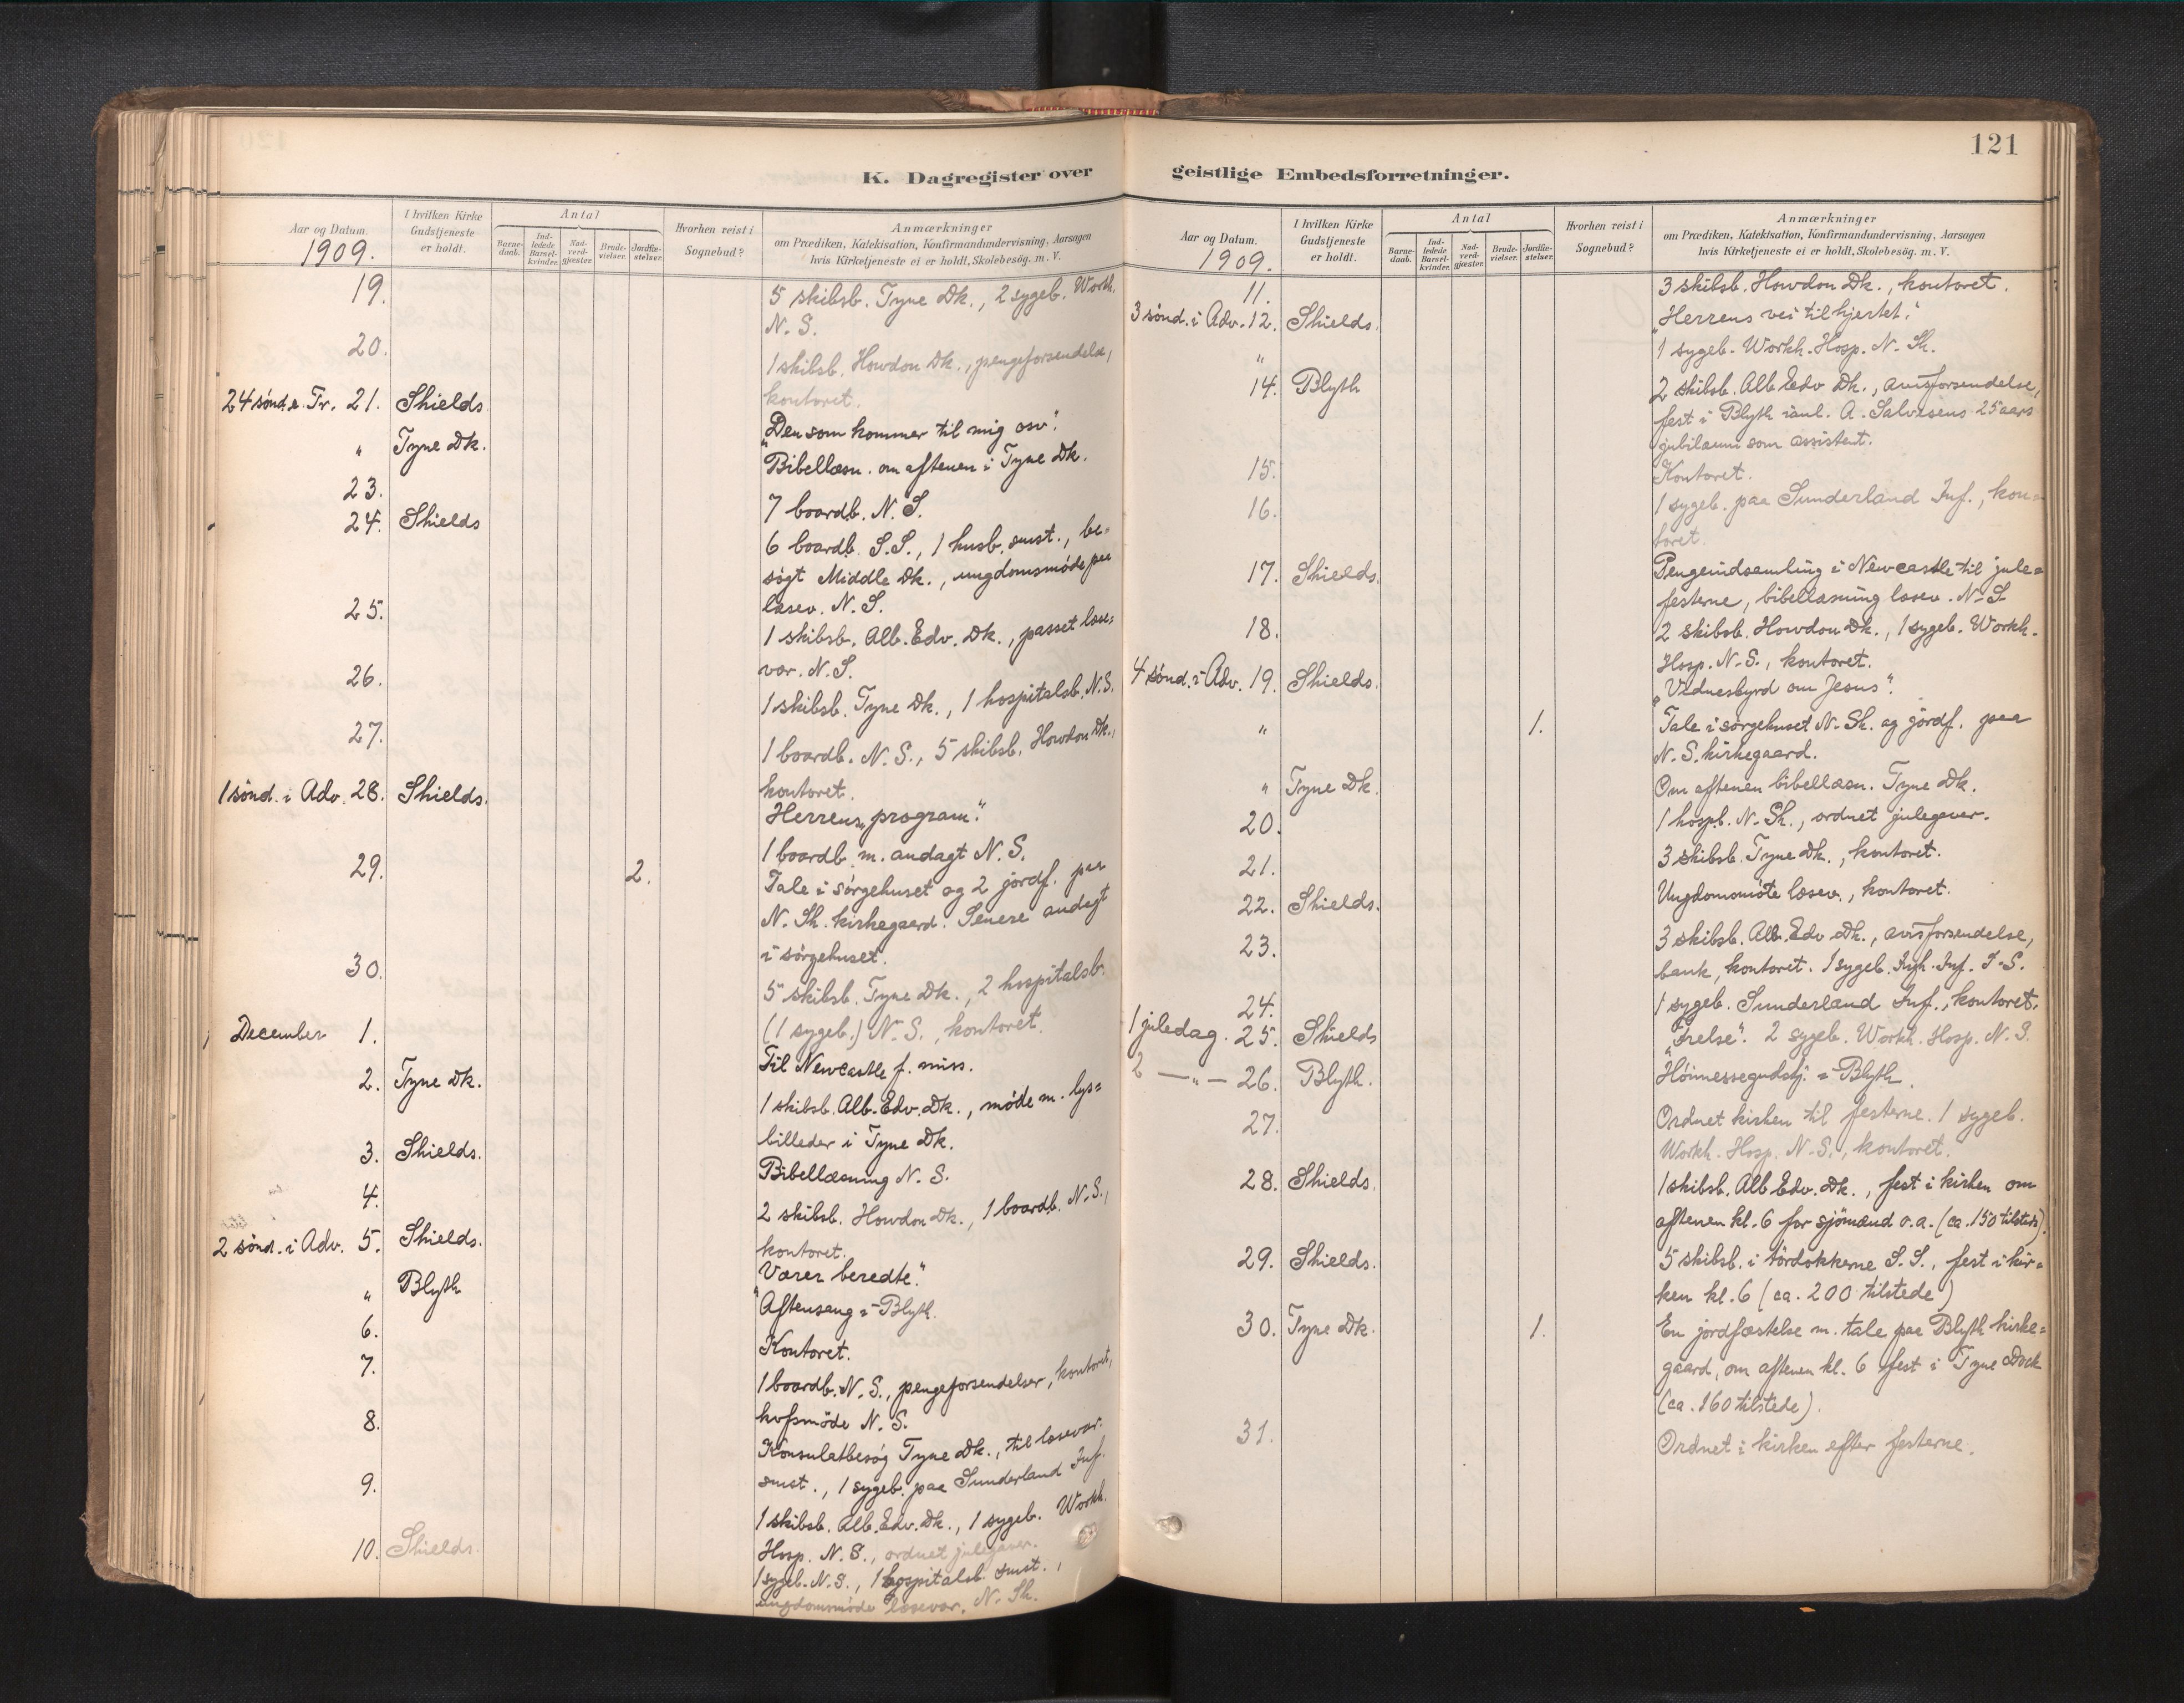 121
K. Dagregister over geistlige Embedsforretninger.
Aar og Datum.
1909.
I hvilken Kirke Gudstjeneste er holdt.
Antal
Barne-daab.
Ind-ledede Barsel-kvinder.
Nad-verd-gjæster.
Brude-vielser.
Jordfæ-stelser.
Hvorhen reist i Sognebud?
Anmærkninger
om Prædiken, Katekisation, Konfirmandundervisning, Aarsagen
hvis Kirketjeneste ei er holdt, Skolebesøg. m. V.
19. 5 skibsb. Tyne Dk., 2 sygeb. Workh.
N. S.
20. 1 skibsb. Howdon Dk., pengeforsendelse,
kontoret.
24 sønd. e. Tr. 21. Shields "Den som kommer til mig osv".
" Tyne Dk. Bibellæsn. om aftenen i Tyne Dk.
23. 7 boardb. N. S.
24. Shields 6 boardb. S.S., 1 husb. smst., be=
søgt Middle Dk., ungdomsmøde paa
læsev. N. S.
25. 1 skibsb. Alb. Edv. Dk., passet læse=
vær. N. S.
26. 1 skibsb. Tyne Dk., 1 hospitalsb. N. S.
27. 1 boardb. N. S., 5 skibsb. Howdon Dk.,
kontoret.
1 sønd. i Adv. 28. Shields. Herrens "program".
1 boardb. m. andagt N. S.
29. 2. Tale i sørgehuset og 2 jordf. paa
N. Sh. kirkegaard. Senere andagt
i sørgehuset.
30. 5 skibsb. Tyne Dk., 2 hospitalsb.
(1 sygeb.) N. S., kontoret.
December 1. Til Newcastle f. miss.
2. Tyne Dk. 1 skibsb. Alb. Edv. Dk., møde m. lys=
billeder i Tyne Dk.
3. Shields. Bibellæsning N. S.
4. 2 skibsb. Howdon Dk., 1 boardb. N. S.,
kontoret.
2 sønd. i Adv. 5. Shields. "Værer beredte".
" Blyth Aftensang i Blyth.
6. Kontoret.
7. 1 boardb. N. S., pengeforsendelser, kontoret,
møde N. S.
8. Konsulatbesøg Tyne Dk., til læsevær.
smst., 1 sygeb. paa Sunderland Inf.
9. 1 skibsb. Alb. Edv. Dk., 1 sygeb. Workh.
Hosp. N. S., ordnet julegaver.
10. Shields. 1 sygeb. N. S., 1 hospitalsb. smst.,
ungdomsmøde læsevær. N. Sh.
Aar og Datum.
1909.
I hvilken Kirke Gudstjeneste er holdt.
Antal
Barne-daab.
Ind-ledede Barsel-kvinder.
Nad-verd-gjæster.
Brude-vielser.
Jordfæ-stelser.
Hvorhen reist i Sognebud?
Anmærkninger
om Prædiken, Katekisation, Konfirmandundervisning, Aarsagen
hvis Kirketjeneste ei er holdt, Skolebesøg. m. V.
11. 3 skibsb. Howdon Dk., kontoret.
3 sønd. i Adv. 12. Shields. "Herrens vei til hjertet".
" 1 sygeb. Workh. Hosp. N. Sh.
14. Blyth 2 skibsb. Alb. Edv. Dk., avisforsendelse,
fest i Blyth ianl. A. Salvesens 25 aars
jubilæum som assistent.
15. Kontoret.
16. 1 sygeb. paa Sunderland Inf., kon=
toret.
17. Shields. Pengeindsamling i Newcastle til jule=
festerne, bibellæsning læsev. N. S.
18. 2 skibsb. Howdon Dk., 1 sygeb. Workh.
Hosp. N. S., kontoret.
4 sønd. i Adv. 19. Shields. "Vidnesbyrd om Jesus".
" 1. Tale i sørgehuset N. Sh. og jordf. paa
N. S. kirkegaard.
" Tyne Dk. Om aftenen bibellæsn. Tyne Dk.
20. 1 hospb. N. Sh., ordnet julegaver.
21. 3 skibsb. Tyne Dk., kontoret.
22. Shields. Ungdomsmøte læsev., kontoret.
23. 3 skibsb. Alb. Edv. Dk., avisforsendelse,
bank, kontoret. 1 sygeb. Inf.
24. 1 sygeb. Sunderland Inf., kontoret.
1 juledag. 25. Shields "Frelse". 2 sygeb. Workh. Hosp. N. S.
2 — " — 26. Blyth. Høimessegudstj. i Blyth.
27. Ordnet kirken til festerne. 1 sygeb.
Workh. Hosp. N. S., kontoret.
28. Shields. 1 skibsb. Alb. Edv. Dk., fest i kirken om
aftenen kl. 6 for sjömænd o.a. (ca. 150 tilstede).
29. Shields. 5 skibsb. i tördokkerne S. S., fest i kir=
ken kl. 6 (ca. 200 tilstede)
30. Tyne Dk. 1. En jordfæstelse m. tale paa Blyth kirke=
gaard, om aftenen kl. 6 fest i Tyne Dock
(ca. 160 tilstede).
31. Ordnet i kirken efter festerne.